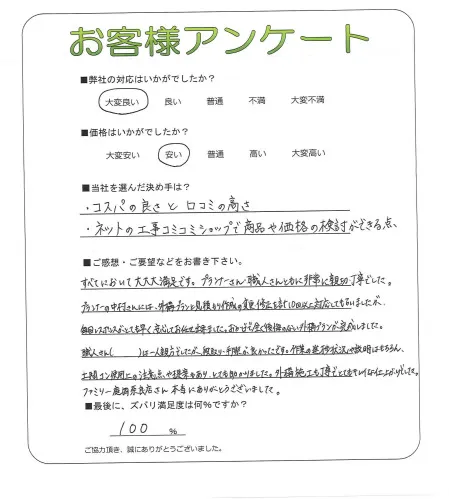 お客様アンケート
■弊社の対応はいかがでしたか？
大変良い 良い 普通 不満 大変不満
■価格はいかがでしたか？
大変安い 安い 普通 高い 大変高い
■当社を選んだ決め手は？
・コスパの良さと口コミの高さ
・ネットの工事コミコミショップで商品や価格の検討ができる点、
■ご感想・ご要望などをお書き下さい。
すべてにおいて大大大満足です。プランナーさん、職人さんともに非常に親切丁寧でした。
プランナーの中村さんには、外構プランと見積もり作成の変更・修正を計10回以上対応してもらいましたが、
毎回レスポンスがとても早く安心してお任せ出来ました。おかげで全く後悔のない外構プランが完成しました。
職人さん( )は一人親方でしたが、段取り・手際が良かったです。作業の進捗状況や説明はもちろん、
土間コン使用上の注意点や提案もあり、とても助かりました。外構施工も丁寧でとてもキレイな仕上がりでした。
ファミリー庭 奈良店さん 本当にありがとうございました。
■最後に、ズバリ満足度は何％ですか？
100 %
ご協力頂き、誠にありがとうございました。